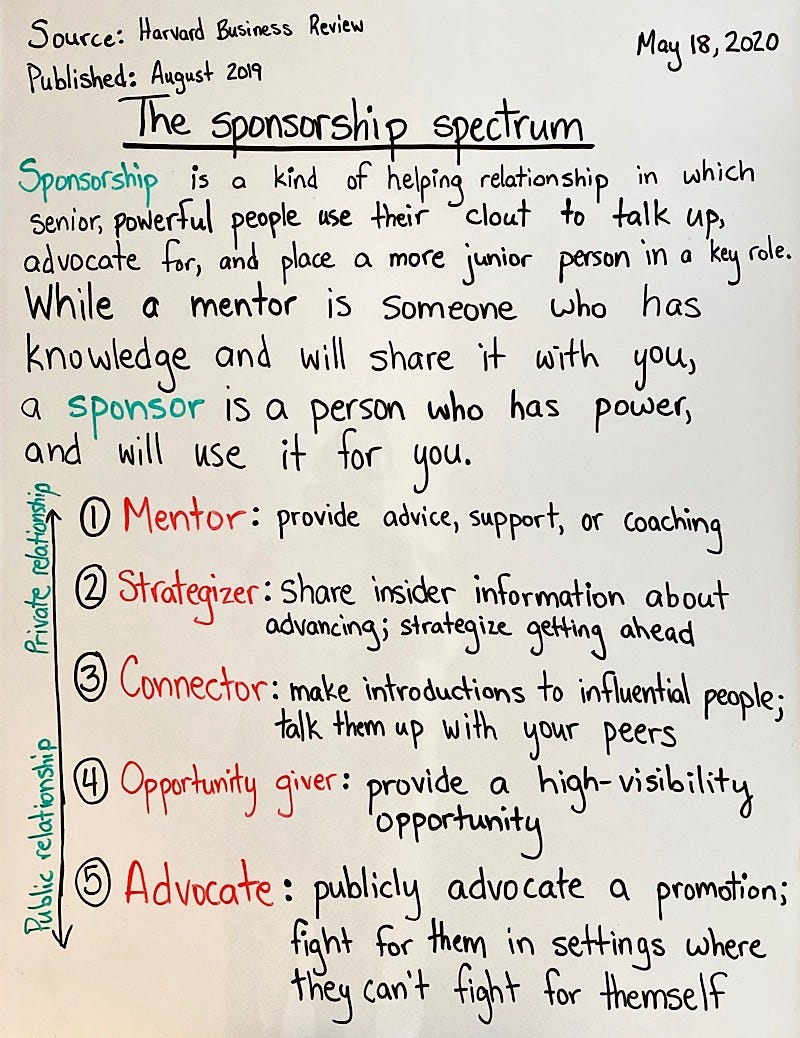 Source: Harvard Business Review
May 18, 2020
Published: August 2019
The sponsorship spectrum
Sponsorship is a kind of helping relationship in which
senior, powerful people use their clout to talk up,
advocate for, and place a more junior person in a key role.
While a mentor is someone who has
knowledge and will share it with you,
a sponsor is a person who has power,
and will use it for you.
Private relationship
① Mentor: provide advice, support, or coaching
② Strategizer: Share insider information about
advancing; strategize getting ahead
③ Connector: make introductions to influential people;
talk them up with your peers
Public relationship
④ Opportunity giver: provide a high-visibility
opportunity
⑤ Advocate: publicly advocate a promotion;
fight for them in settings where
they can't fight for themself